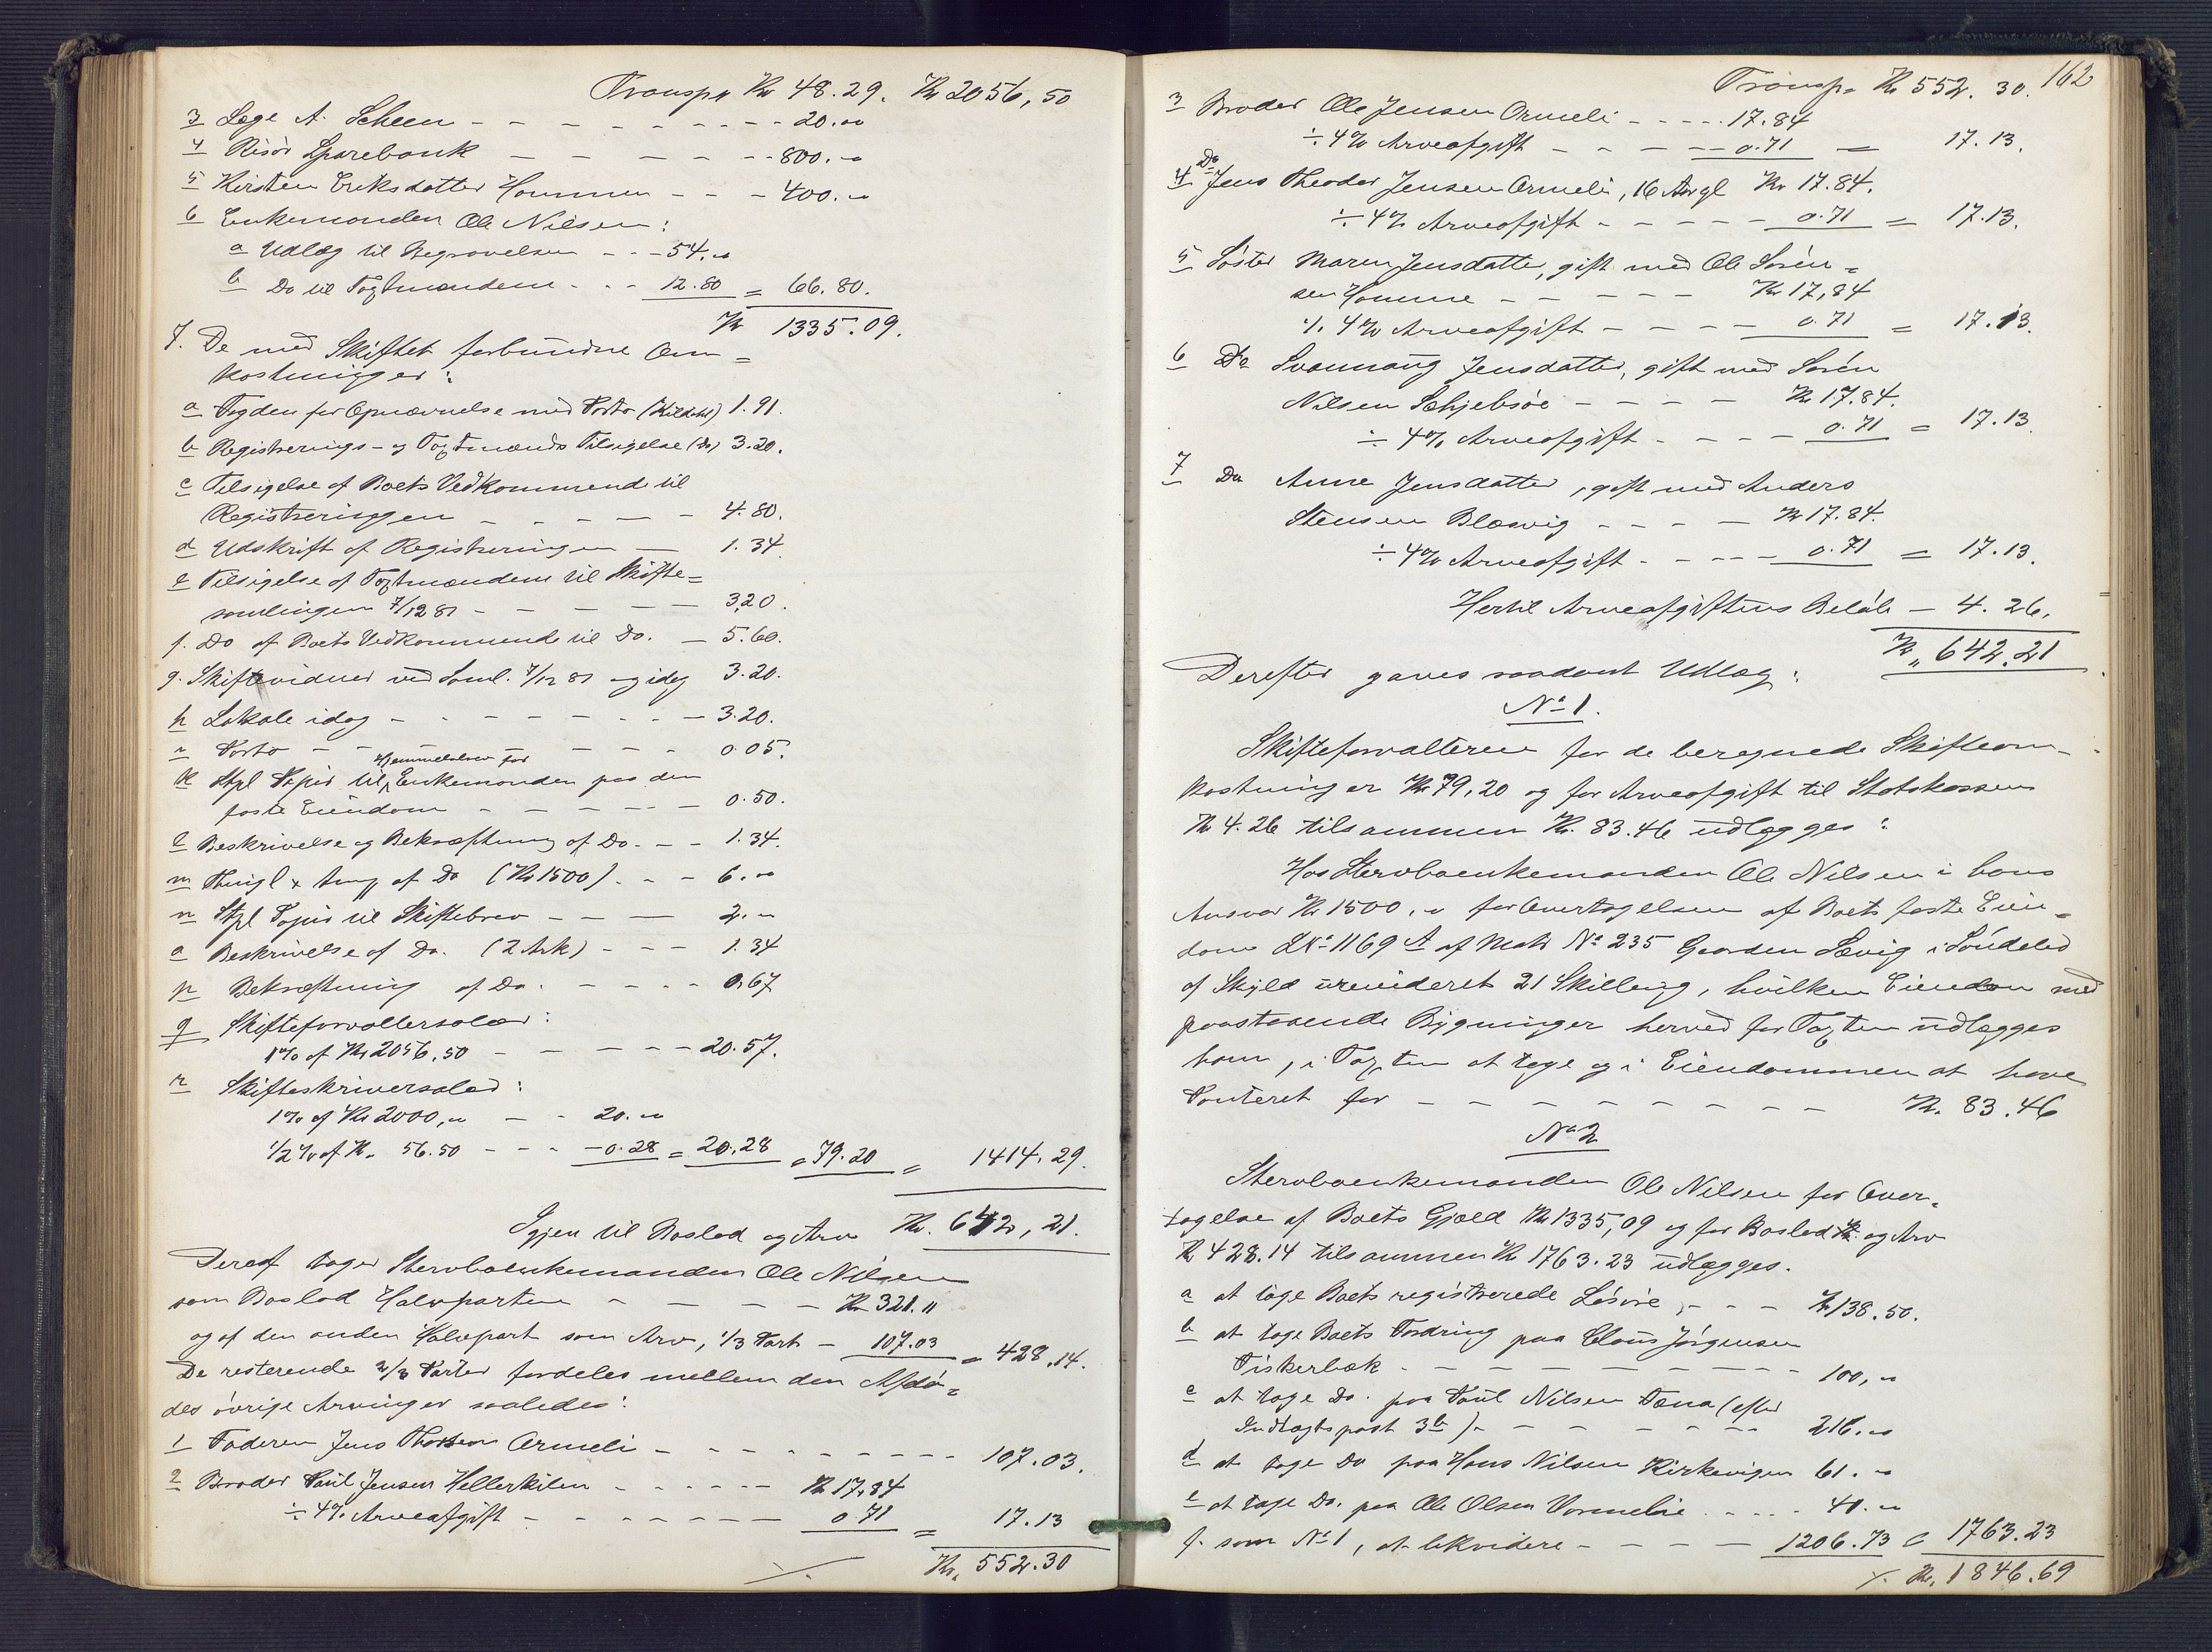 Transpt Kr 48.29. Kr 2056,50
3 Læge A. Scheen - - - - - - - - 20.00
4 Risør Sparebank - - - - - - 800.00
5 Kirsten Eriksdatter Hommen - - - 400.00
6 Enkemanden Ole Nilsen:
a Udlæg til Begravelsen - - - 54.00
b Do til Taxtmændene - - - 12.80 = 66.80.
Kr 1335.09.
7. De med Skiftet forbundne Om=
kostninger:
a Fogden for Opnævnelse med Porto (Kildahl) 1.91.
b Registrerings- og Taxtmænds Tilsigelse (Do) 3.20.
c Tilsigelse af Boets Vedkommende til
Registreringen - - - - - 4.80.
d Udskrift af Registreringen - 1.34
e Tilsigelse af Taxtmændene til Skifte=
samlingen 7/12 81 - - - - - 3.20.
f. Do af Boets Vedkommende til Do. - 5.60.
g. Skiftevidner ved Saml. 7/12 81 og idag 3.20.
h Lokale idag - - - - - - - 3.20.
i Porto - - - - - - 0.05.
Hjemmelsbrev for
k Stpl Papir til Enkemanden paa den
faste Eiendom - - - - - 0.50.
l Beskrivelse og Bekræftning af Do. - - 1.34.
m Thingl & Ang af Do (Kr 1500). - - 6.00
n Stpl Papir til Skiftebrev - - - 2.00
o Beskrivelse af Do. (2 Ark) - - - 1.34
p Bekræftning af Do. - - - - 0.67
q Skifteforvaltersalær:
1% af Kr 2056,50 - - - - - 20.57.
r Skifteskriversalær:
1% af Kr 2000,00 - - 20.00
1/2% af Kr. 56.50 - - - 0.28 = 20.28 = 79.20 = 1414.29.
Igjen til Boslod og Arv Kr. 642,21.
Deraf tager Stervboenkemanden Ole Nilsen
som Boslod Halvparten - - - - - Kr 321.11
og af den anden Halvpart som Arv, 1/3 Part - 107.03 = 428.14.
De resterende 2/3 Parter fordeles mellem den Afdø=
des øvrige Arvinger saaledes:
1 Faderen Jens Ormeli - - - - - - - 107.03.
2 Broder Paul Jensen Hellerkilen - - - - - Kr 17.84
÷ 4% Arveafgift - - - - - - - 0.71 = 17.13
./. Kr. 552.30
Transp. Kr 552.30. 162
3 Broder Ole Jensen Ormeli - - - - 17.84
÷ 4% Arveafgift - - - - - 0.71 = 17.13.
4 Do Jens Theodor Jensen Ormeli, 16 Aar gl Kr 17.84.
÷ 4% Arveafgift - - - - - 0.71 = 17.13.
5 Søster Maren Jensdatter, gift med Ole Søren=
sen Homme - - - - - Kr 17,84
./. 4% Arveafgift - - - - 0.71 = 17.13.
6 Do Svannaug Jensdatter, gift med Søren
Nilsen Schjebsøe - - - - Kr 17.84.
÷ 4% Arveafgift - - - - 0.71 = 17.13.
7 Do Anne Jensdatter, gift med Anders
Stensen Blæsvig - - - - Kr 17.84.
÷ 4% Arveafgift - - - - 0.71 = 17.13.
Hertil Arveafgiftens Beløb - 4.26.
Kr " 642.21
Derefter gaves saadant Udlæg:
No 1.
Skifteforvalteren for de beregnede Skifteom-
kostninger Kr 79,20 og for Arveafgift til Statskassen
Kr 4.26 tilsammen Kr. 83.46 udlægges:
Hos Stervboenkemanden Ole Nilsen i hans
Ansvar Kr 1500,00 for Overtagelsen af Boets faste Eien=
dom LNo 1169 A af Matr No 235 Gaarden Sævig i Søndeled
af Skyld urevideret 21 Skilling, hvilken Eiendom med
paastaaende Bygninger herved for Taxten udlægges
ham, i Taxten at tage og i Eiendommen at have
Panteret for - - - - - - - - - Kr. 83.46
No 2
Stervboenkemanden Ole Nilsen for Over=
tagelse af Boets Gjæld Kr 1335,09 og for Boslod og Arv
Kr 428.14 tilsammen Kr 1763.23 udlægges.
a at tage Boets registrerede Løsøre, - - - Kr 138.50.
b at tage Boets Fordring paa Claus Jørgensen
Fiskerbæk - - - - - - - - - 100,00
c at tage Do. paa Paul Nilsen (efter
Indtægtspost 3 b) - - - - - - - 216.00
d at tage Do paa Hans Nilsen Kirkevigen 61.00
e at tage Do. paa Ole Olsen Vormelie - - - - 41.00
f. som No 1, at likvidere - - - - - 1206.73 = 1763.23
./. Kr. 1846.69